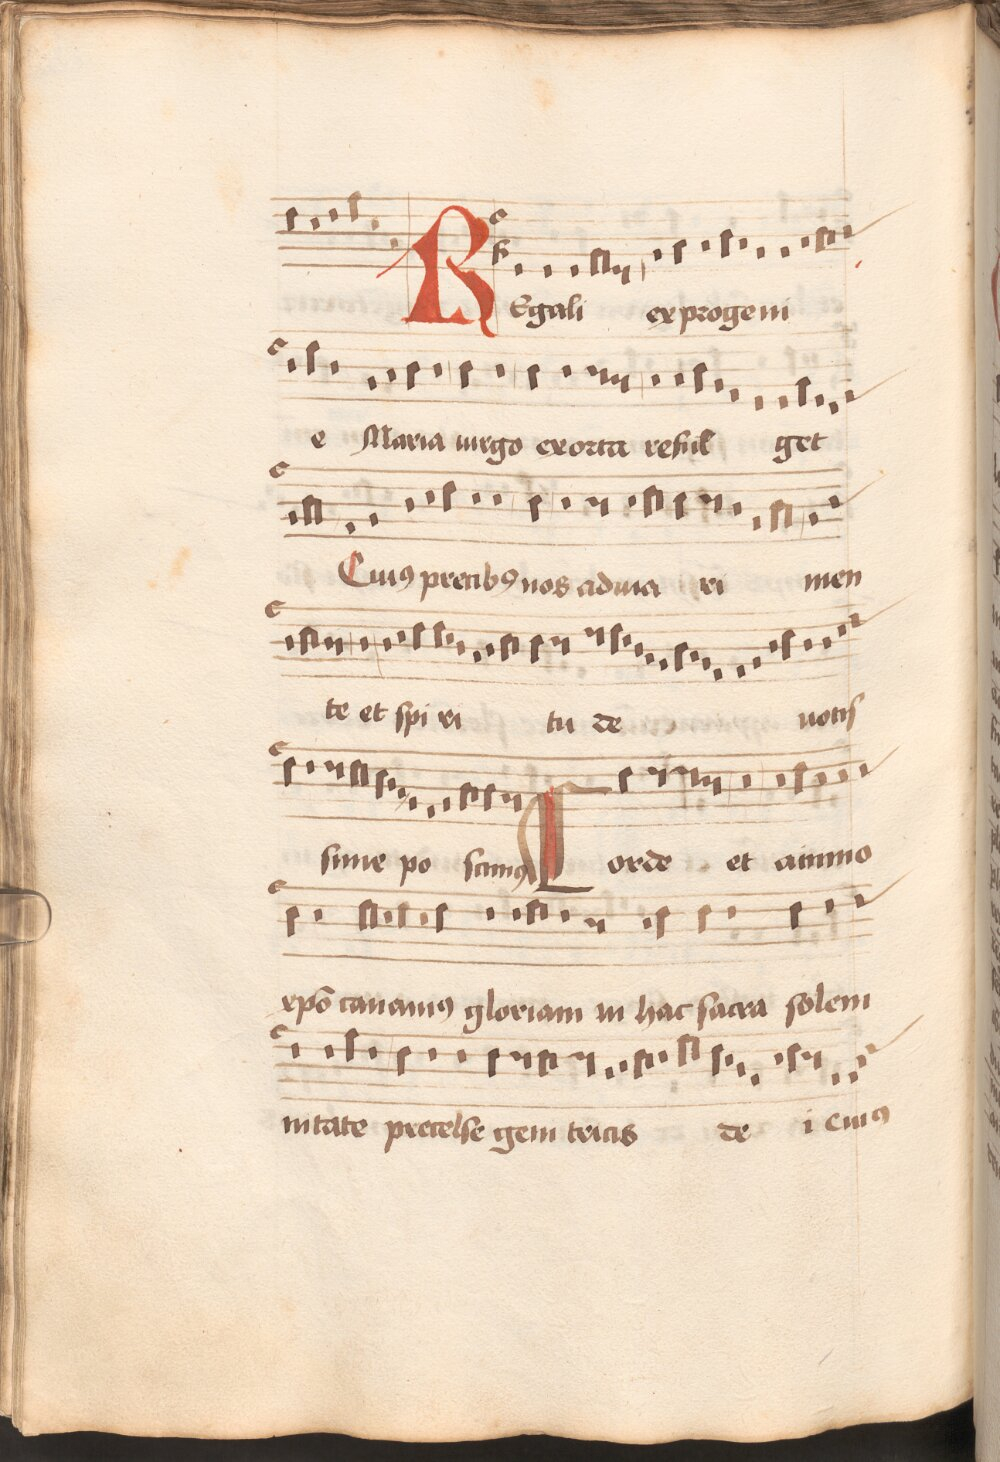 REgali ex progeni
e Maria uirgo exorta reful get
Cuiꝰ precibꝰ nos adiuua ri men
te et spi ri tu de uotis
sime po scimꝰ
Corde et animo
xpō canamꝰ gloriam in hac sacra solem
nitate precelse geni tricis de i Cuiꝰ